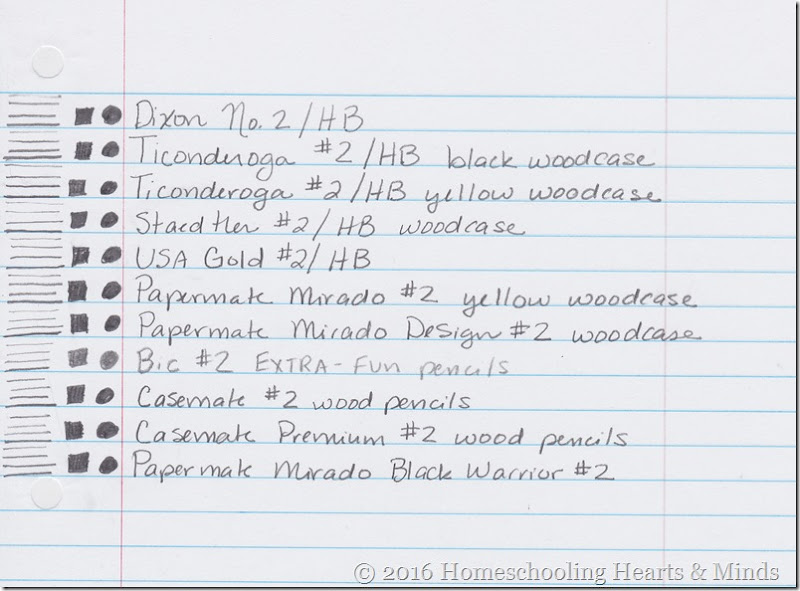 Dixon No. 2/HB
Ticonderoga #2/HB black woodcase
Ticonderoga #2/HB yellow woodcase
Staedtler #2/HB woodcase
USA Gold #2/HB
Papermate Mirado #2 yellow woodcase
Papermate Mirado Design #2 woodcase
Bic #2 EXTRA-FUN pencils
Casemate #2 wood pencils
Casemate Premium #2 wood pencils
Papermate Mirado Black Warrior #2
© 2016 Homeschooling Hearts & Minds